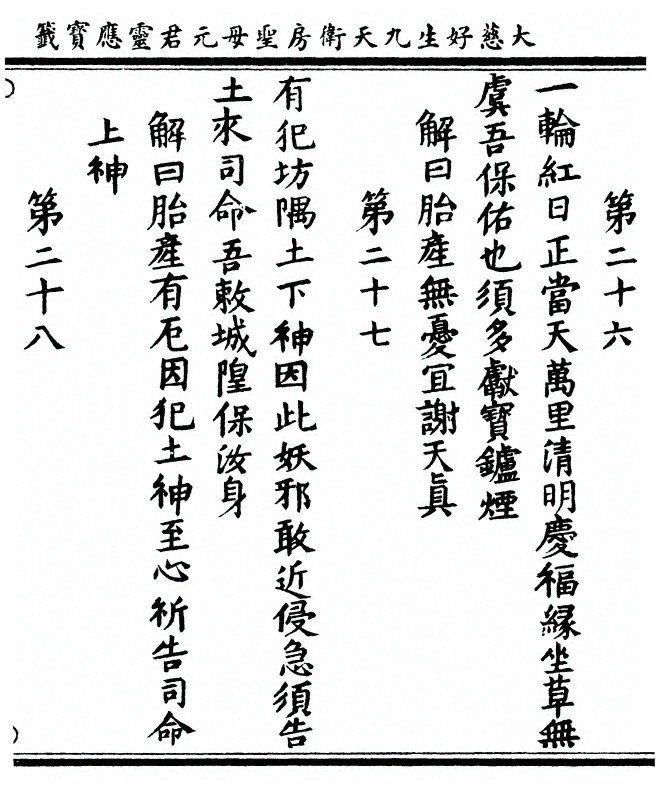 大慈好生九天衛房聖母元君靈應寶籤
第二十六
一輪紅日正當天萬里清明慶福緣坐草無
虞吾保佑也須多獻寶鑪煙
解曰胎產無憂宜謝天真
第二十七
有犯坊隅土下神因此妖邪敢近侵急須告
土求司命吾敕城隍保汝身
解曰胎產有厄因犯土神至心祈告司命
上神
第二十八